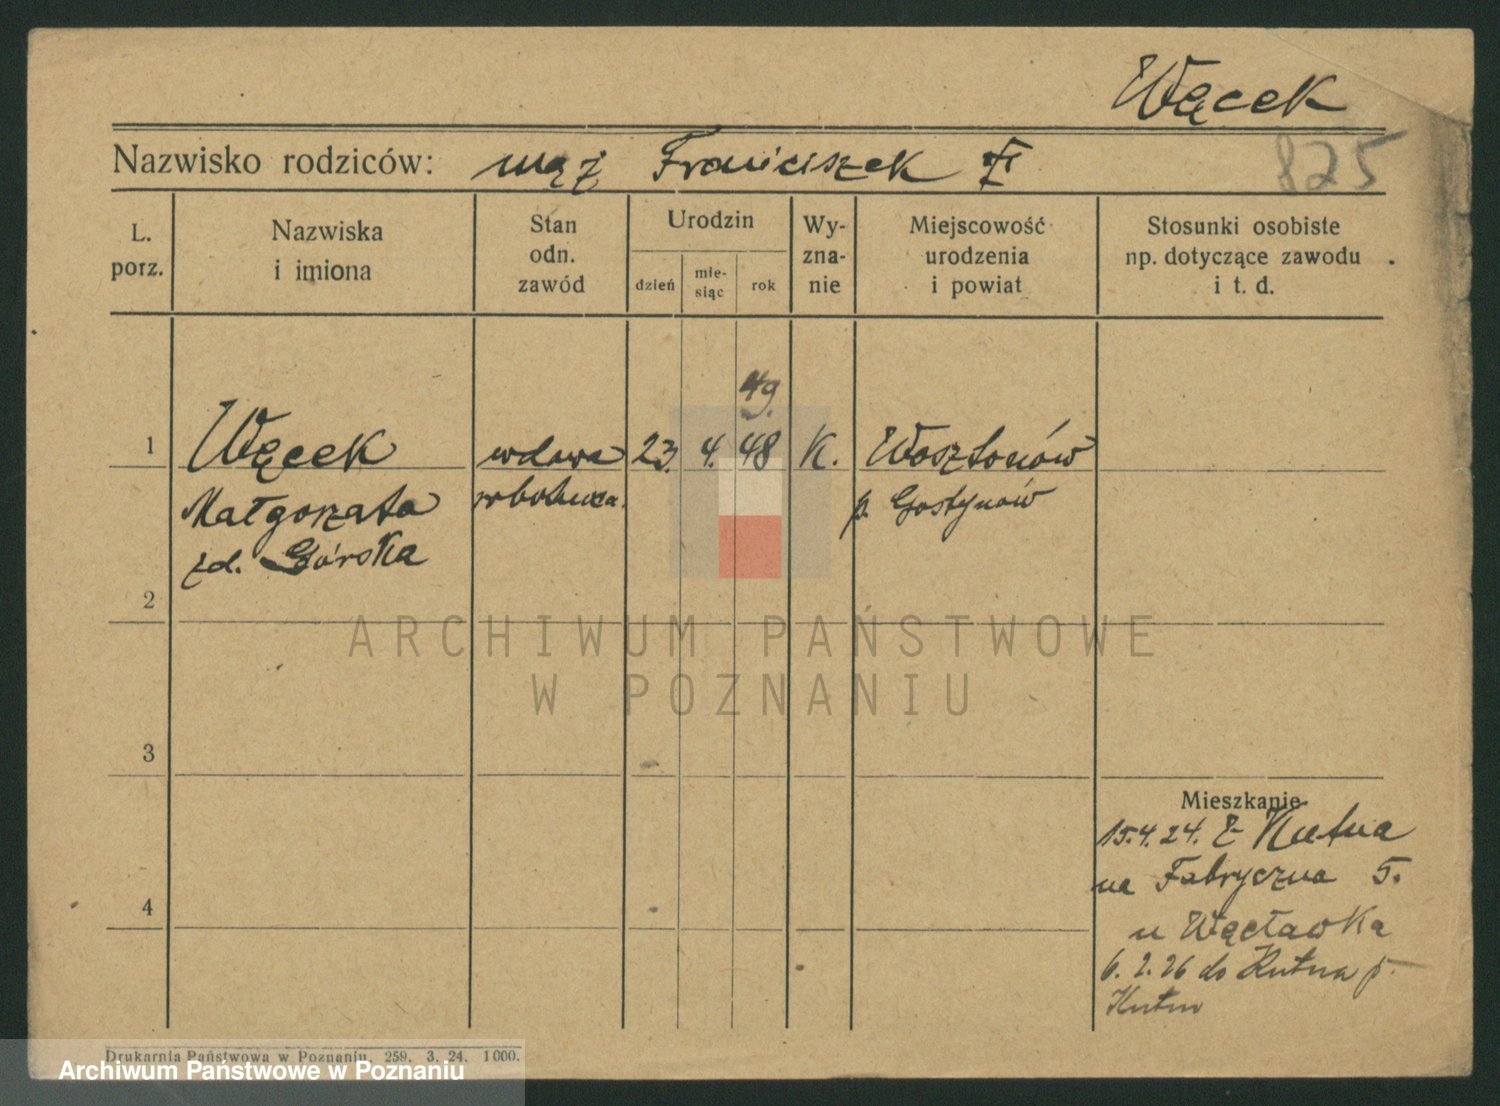 Węcek
825
Nazwisko rodziców: mąż Franciszek
L. porz.
Nazwiska i imiona
Stan odn. zawód
Urodzin
dzień
mie-siąc
rok
Wy-zna-nie
Miejscowość urodzenia i powiat
Stosunki osobiste np. dotyczące zawodu i t. d.
49.
1 Węcek wdowa 23. 4. 48 K.
Małgorzata robotnica. p. Gostynów
zd. Górska
2
ARCHIWUM PAŃSTWOWE
W POZNANIU
3
Mieszkanie
15.4.24. z Kutna
na Fabryczna 5.
4
u Wacławka
6. 2. 26 do Kutna p.
Kutno
Drukarnia Państwowa w Poznaniu. 259. 3. 24. 1000.
Archiwum Państwowe w Poznaniu